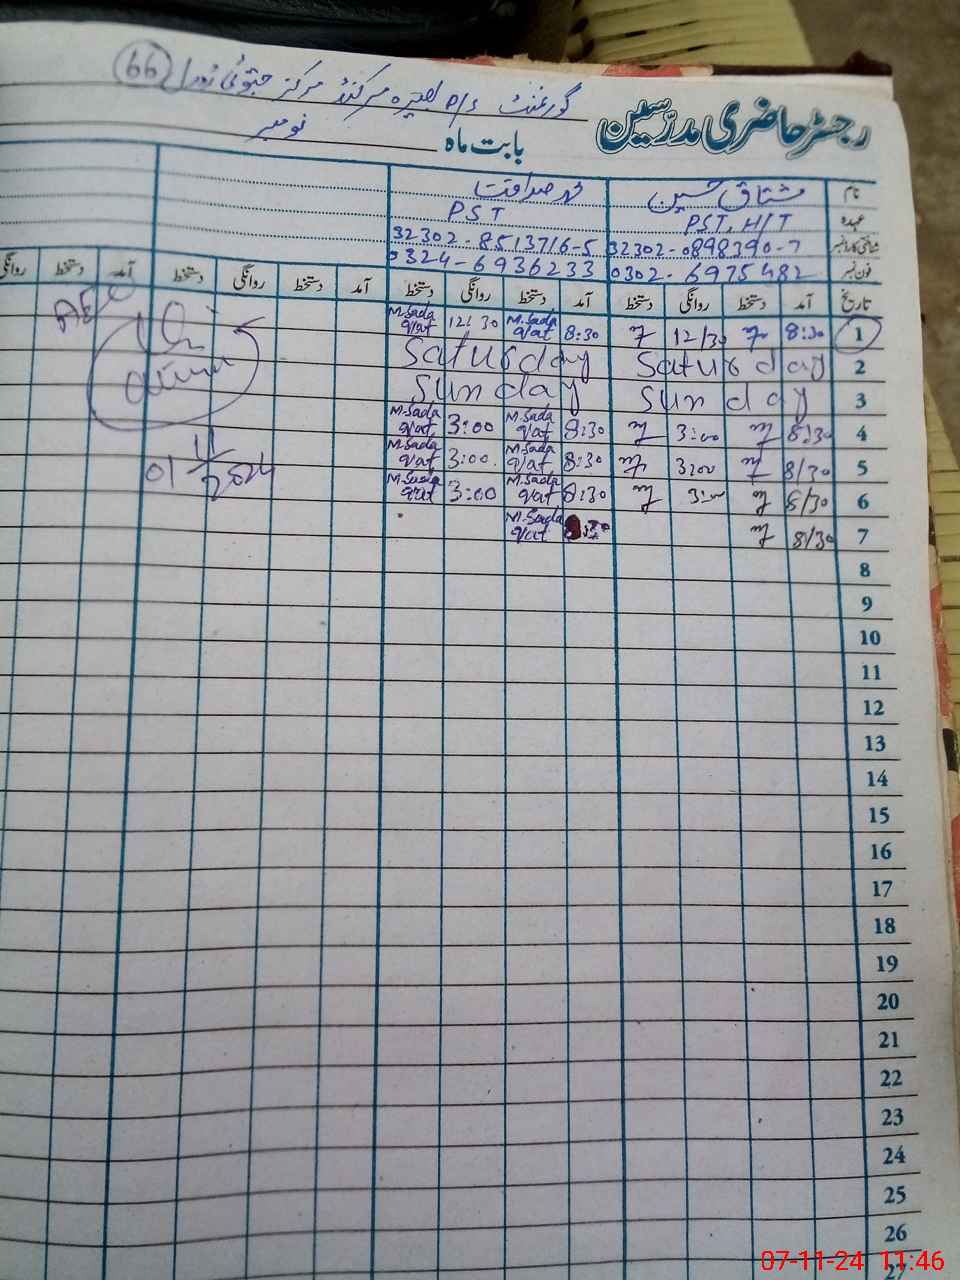 66
گورنمنٹ P/S بصیرہ سرکنڈ مرکز جتوئی
رجسٹر حاضری مدرسین
بابت ماہ نومبر
نام مشتاق حسین محمد صداقت
عہدہ PST, H/T PST
شناختی کارڈ نمبر 32302-0898390-7 32302-8513716-5
فون نمبر 0302-6975482 0324-6936233
تاریخ آمد دستخط روانگی دستخط آمد دستخط روانگی دستخط آمد دستخط روانگی دستخط آمد دستخط روانگی
1 8:30 12/30 8:30 M.Sada qat 12:30 M.Sada qat
2 Saturday Saturday
3 Sunday Sunday
4 8/30 3:00 8:30 M.Sada qat 3:00 M.Sada qat
5 8/30 3:00 8:30 M.Sada qat 3:00 M.Sada qat
6 8/30 3:00 8:30 M.Sada qat 3:00 M.Sada qat
7 8/30 M.Sada qat
AEO
01 11 2024
8
9
10
11
12
13
14
15
16
17
18
19
20
21
22
23
24
25
26
27
07-11-24 11:46